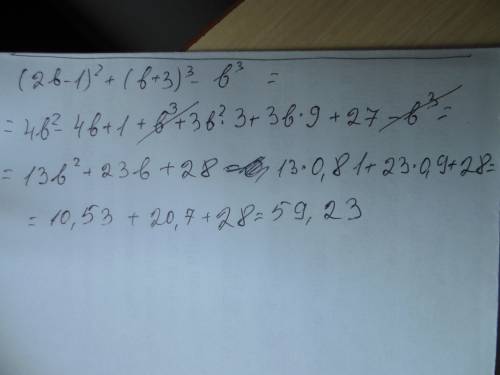 (2b-1)² + (b+3)³ - b³ =
= 4b² - 4b + 1 + b³ + 3b² 3 + 3b · 9 + 27 - b³ =
= 13b² + 23b + 28 13 · 0,81 + 23 · 0,9 + 28 =
= 10,53 + 20,7 + 28 = 59,23